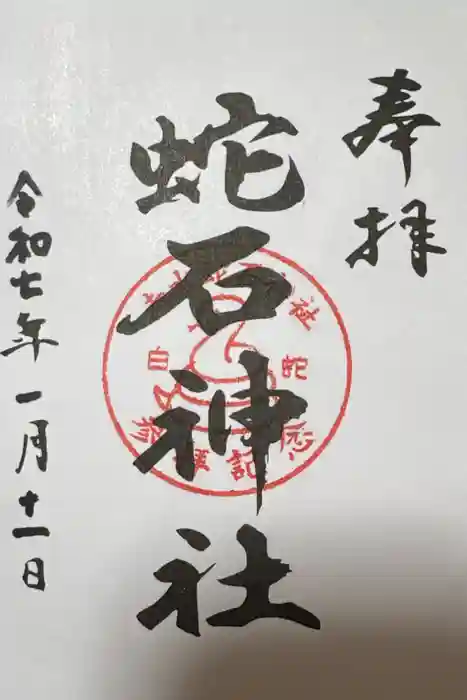 奉拝
蛇石神社
令和七年一月十一日
白蛇
参拝記念